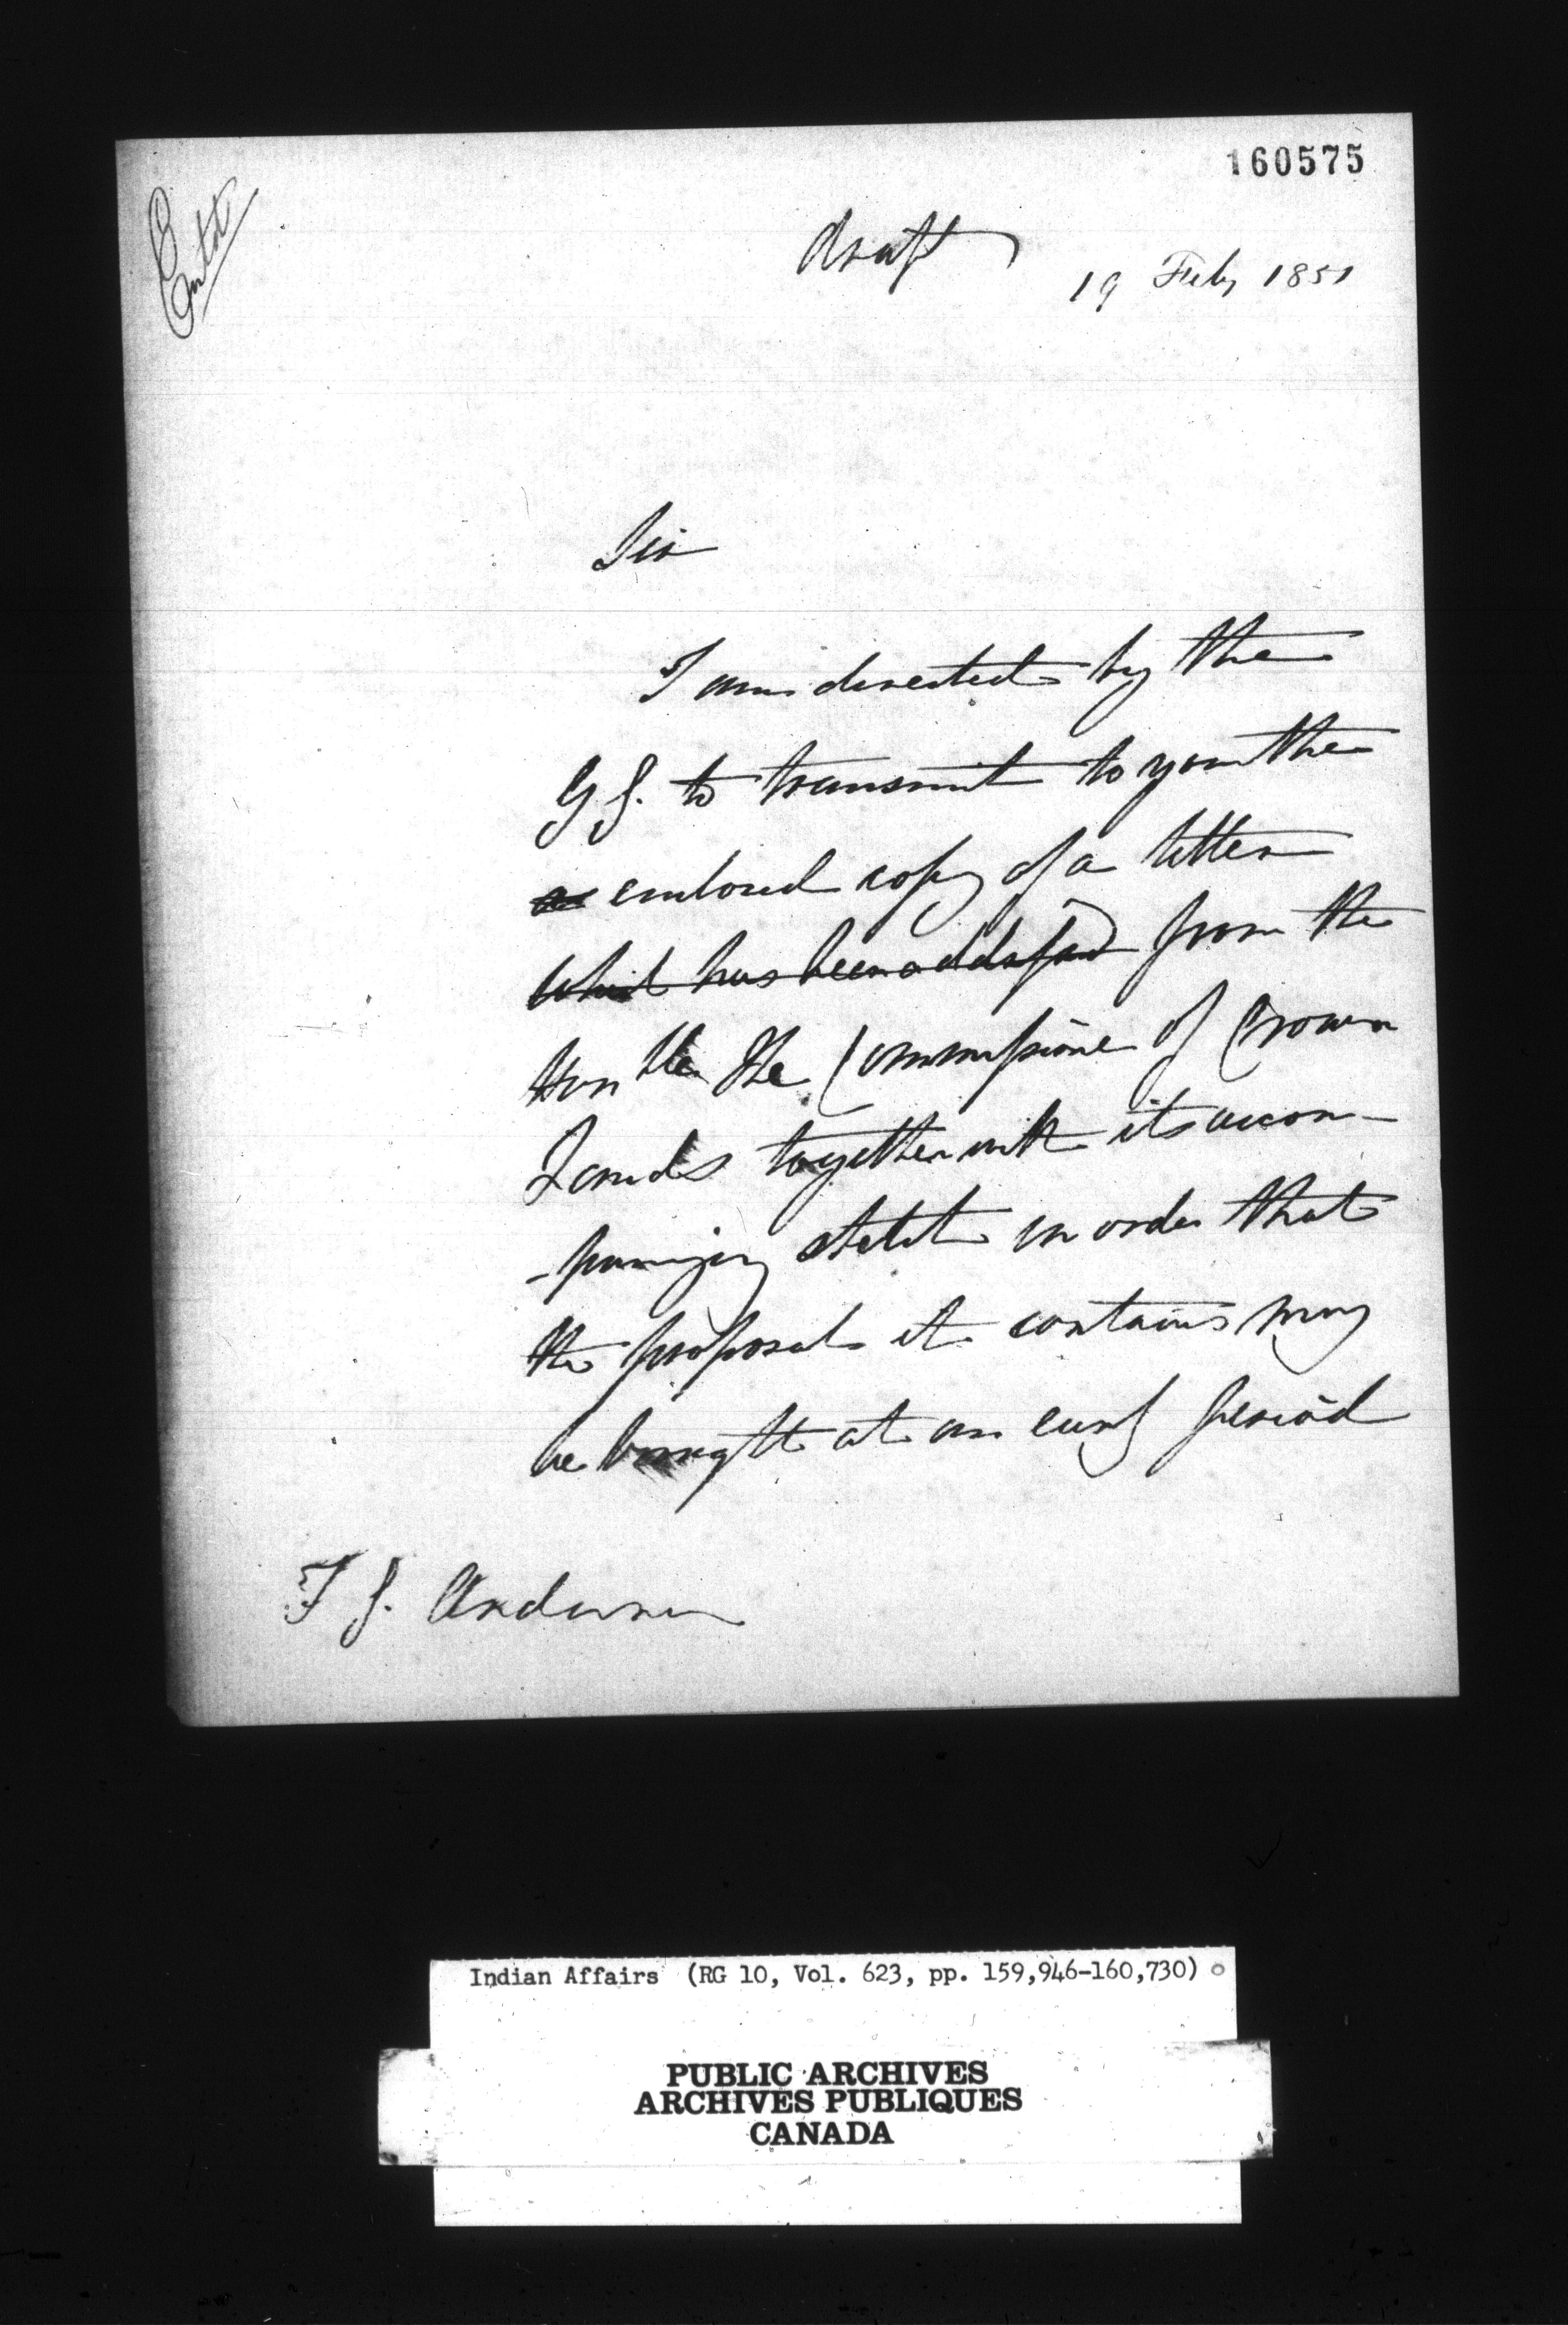 160575
Entd
Draft
19 Feby 1851
Sir
I am directed by the
G G. to transmit to you the
enclosed copy of a letter
which has been addressed from the
Honble The Commissioner of Crown
Lands together with its accom-
-panying statet in order that
the proposal it contains may
be brought at an early period
T G. Anderson
Indian Affairs (RG 10, Vol. 623, pp. 159,946-160,730)
PUBLIC ARCHIVES
ARCHIVES PUBLIQUES
CANADA